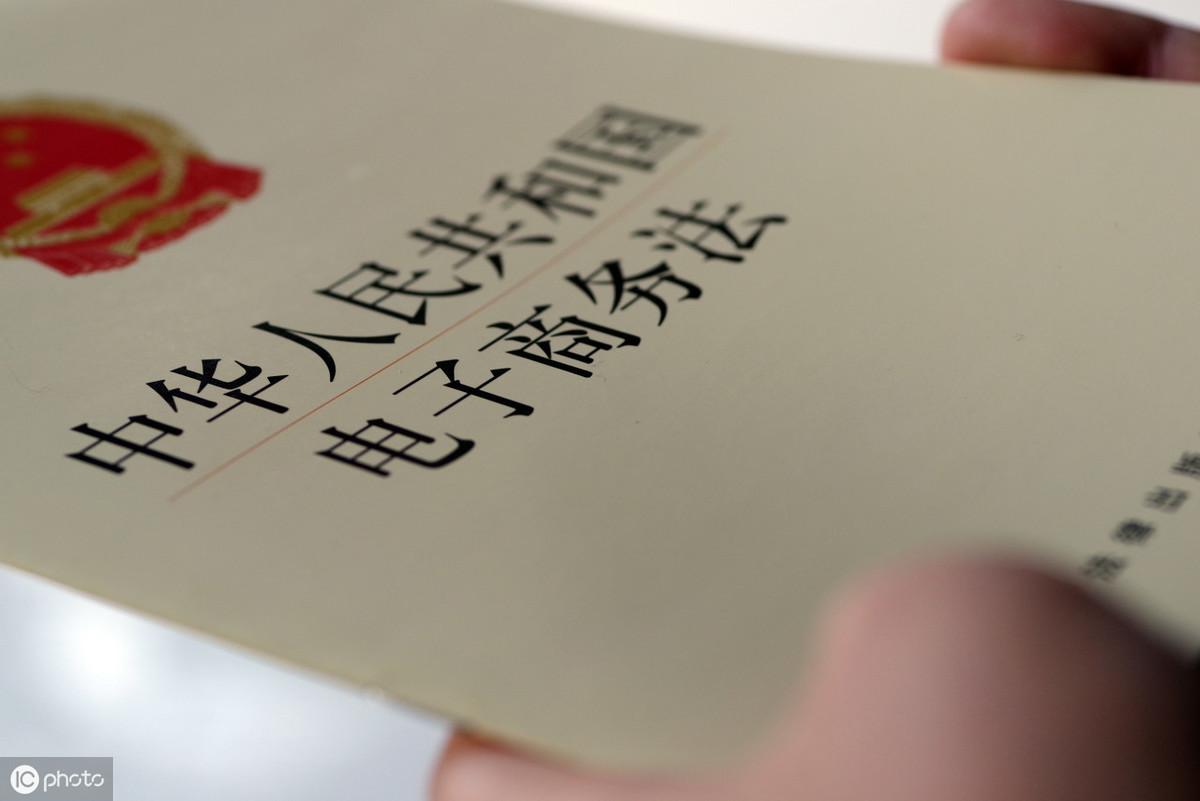 中华人民共和国
电子商务法
IC photo